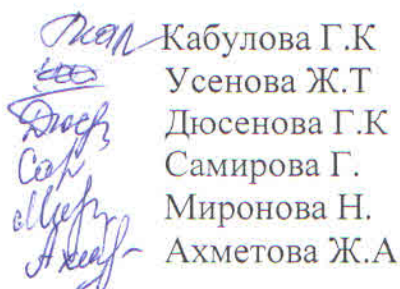 Кабулова Г.К
Усенова Ж.Т
Дюсенова Г.К
Самирова Г.
Миронова Н.
Ахметова Ж.А